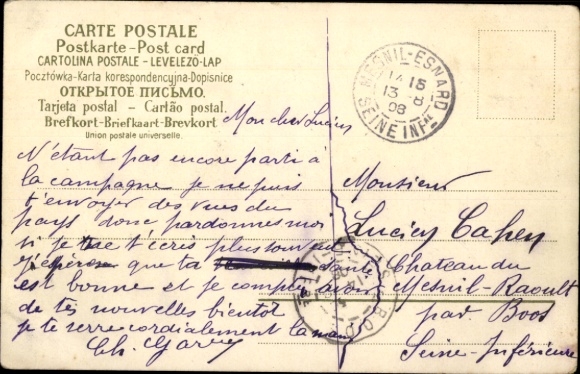 CARTE POSTALE
Postkarte – Post card
CARTOLINA POSTALE – LEVELEZŐ-LAP
Pocztówka-Karta korespondencyjna-Dopisnice
ОТКРЫТОЕ ПИСЬМО.
Tarjeta postal – Cartão postal
Brefkort-Briefkaart-Brevkort
Union postale universelle.
MESNIL-ESNARD
13 - 8
08
SEINE INFRE
Mon cher Lucien
N'étant pas encore parti à
la campagne je ne puis
t'envoyer des vues du
pays donc pardonnes moi
si je ne t'écris plus souvent
J'espère que ta santé
est bonne et je compte avoir
de tes nouvelles bientôt
je te serre cordialement la main
Monsieur
Lucien Cahen
Chateau du
Mesnil-Raoult
par Boos
Seine-Inférieure